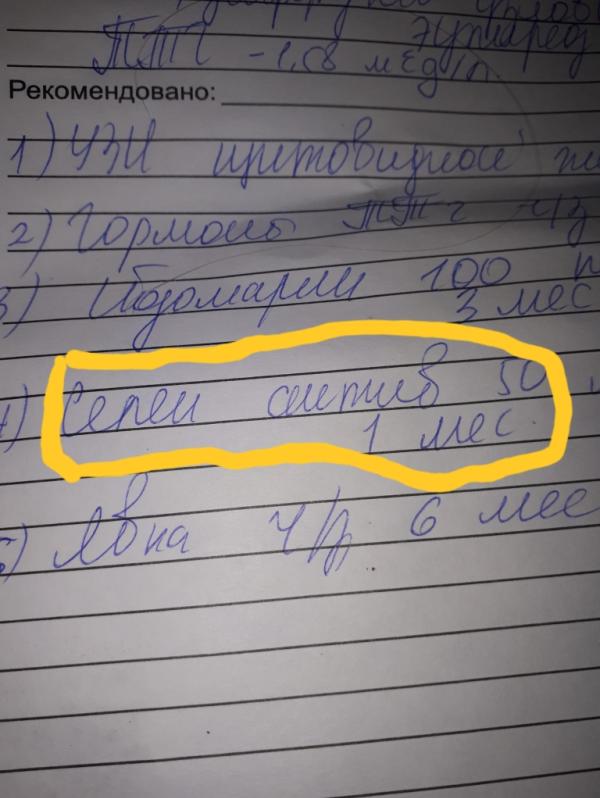 эутиреоз
ТТГ -1,08 мЕд/л
Рекомендовано:
1) УЗИ щитовидной
2) Гормоны ТТГ ч/з
3) Йодомарин 100
3 мес
4) Селен актив 50
1 мес
5) Явка ч/з 6 мес